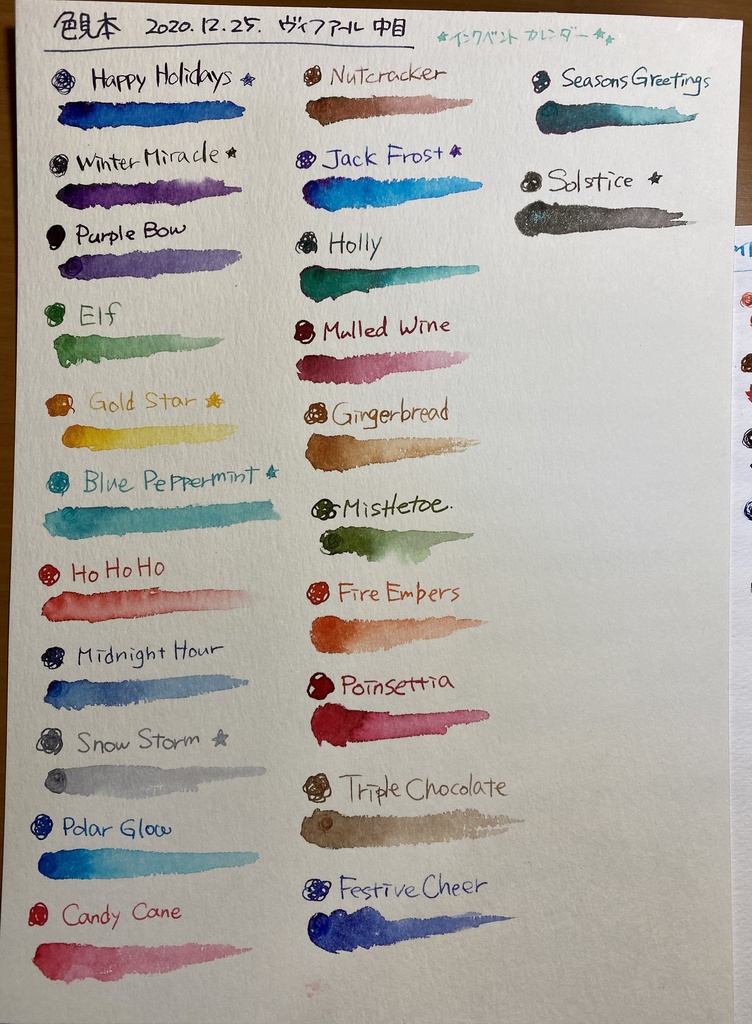 色見本 2020.12.25. ヴィファール 中目
☆インクベント カレンダー☆☆
Happy Holidays ☆
Winter Miracle ☆
Purple Bow
Elf
Gold Star ☆
Blue Peppermint ☆
Ho Ho Ho
Midnight Hour
Snow Storm ☆
Polar Glow
Candy Cane
Nutcracker
Jack Frost ☆
Holly
Mulled Wine
Gingerbread
Mistletoe.
Fire Embers
Poinsettia
Triple Chocolate
Festive Cheer
Seasons Greetings
Solstice ☆